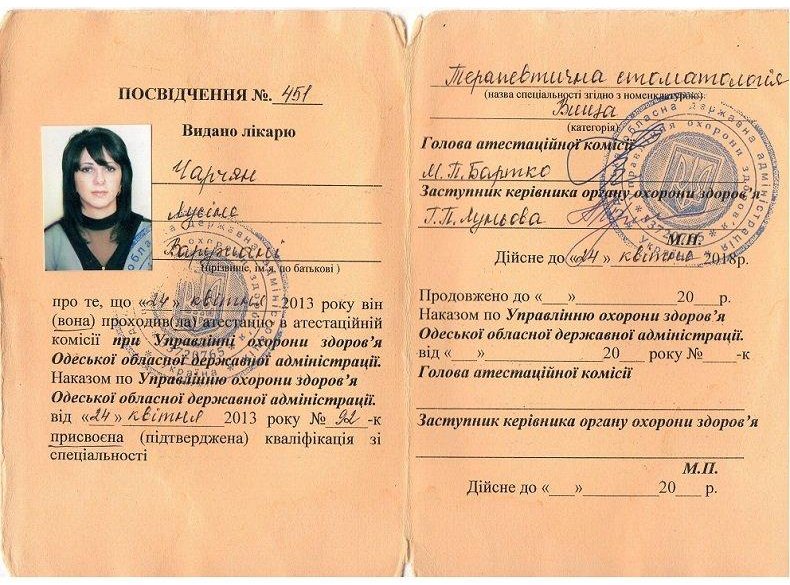 ПОСВІДЧЕННЯ №. 451
Видано лікарю
Чарчян
Лусіне
Варужани
(прізвище, ім'я, по батькові )
про те, що «24» квітня 2013 року він
(вона) проходив(ла) атестацію в атестаційній
комісії при Управлінні охорони здоров'я
Одеської обласної державної адміністрації.
Наказом по Управлінню охорони здоров'я
Одеської обласної державної адміністрації.
від «24» квітня 2013 року № 92 -к
присвоєна (підтверджена) кваліфікація зі
спеціальності
Терапевтична стоматологія
(назва спеціальності згідно з номенклатурою)
Вища
(категорія)
Голова атестаційної комісії
М.П.Бартко
Заступник керівника органу охорони здоров'я
Г.П.Луньова
М.П.
Дійсне до «24» квітня 2018р.
Продовжено до «___»__________20___р.
Наказом по Управлінню охорони здоров'я
Одеської обласної державної адміністрації.
від «___»__________20___ року №____-к
Голова атестаційної комісії
Заступник керівника органу охорони здоров'я
М.П.
Дійсне до «___»__________20___ р.